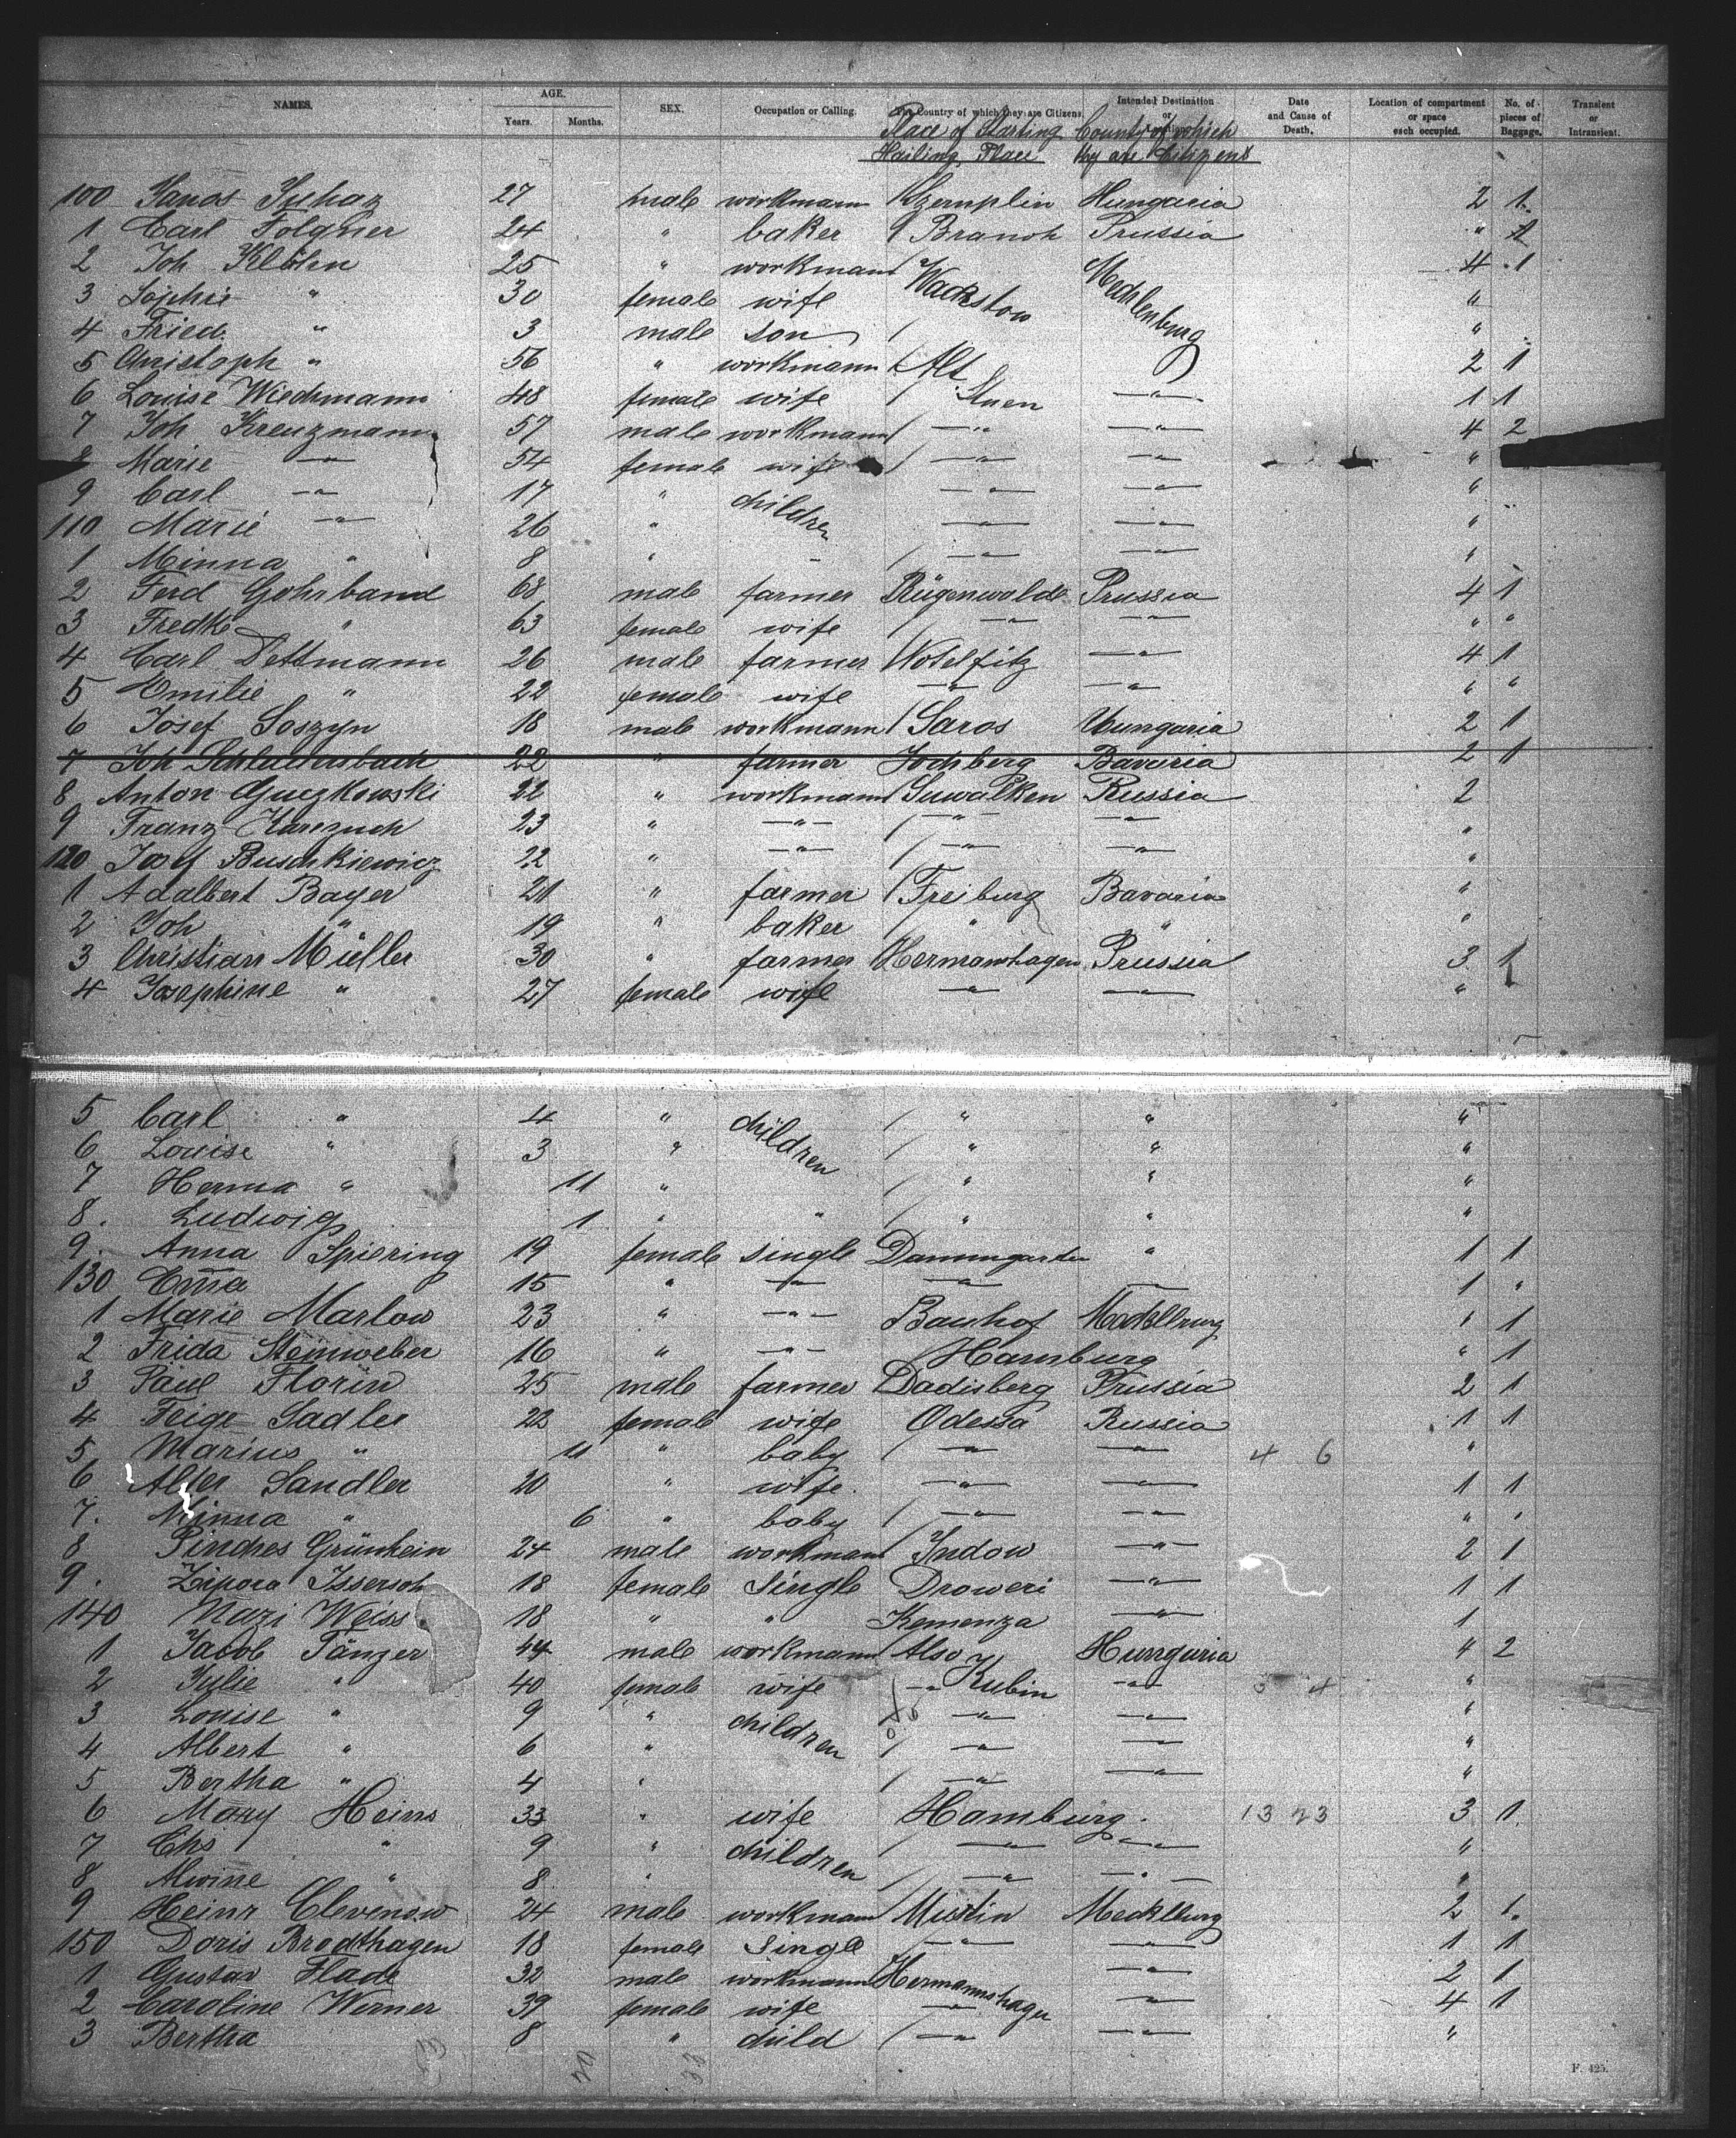 NAMES. AGE. Years. Months. SEX. Occupation or Calling. The Country of which they are Citizens. Intended Destination or Date and Cause of Death. Location of compartment or space each occupied. No. of pieces of Baggage. Transient or Intransient.
Place of Starting County of which
Hailing Place they are Citizens
100 Janos Juhaz 27 male workmann Szemplin Hungaria 2 1
1 Carl Folgner 24 " baker Branoh Prussia " 1
2 Joh Klöhn 25 " workmann Wackstow Mecklenburg 4 1
3 Sophie " 30 female wife "
4 Fried. " 3 male son "
5 Christoph " 56 " workmann Alt 2 1
6 Louise Wiechmann 48 female wife Stuen —"— 1 1
7 Joh Kreuzmann 57 male workmann —"— —"— 4 2
8 Marie —"— 54 female wife —"— —"— "
9 Carl —"— 17 " children —"— —"— "
110 Marie —"— 26 " —"— —"— "
1 Minna " 8 " —"— —"— "
2 Ferd Gohrband 68 male farmer Rügenwalde Prussia 4 1
3 Fredke " 63 female wife —"— —"— " "
4 Carl Dettmann 26 male farmer Wotelfitz —"— 4 1
5 Emilie " 22 female wife —"— —"— " "
6 Josef Soszyn 18 male workmann Saros Hungaria 2 1
7 Joh Schluttersbach 22 " farmer Jochberg Bavaria 2 1
8 Anton Guczkowski 22 " workmann Suwalken Russia 2
9 Franz 23 " —"— —"— —"— "
120 Josef Buschkiewicz 22 " —"— —"— —"— "
1 Adalbert Bayer 21 " farmer Freiburg Bavaria "
2 Joh " 19 " baker " " "
3 Christian Müller 30 " farmer Hermannhagen Prussia 3 1
4 Josephine " 27 female wife —"— —"— "
5 Carl " 4 " children " " "
6 Louise " 3 " " " "
7 Herma " 11 " " " "
8. Ludwig 1 " " " " "
9. Anna Spiering 19 female single Dammgarten " 1 1
130 Ema 15 " —"— —"— —"— 1 "
1 Marie Marlow 23 " —"— Bauhof Mecklburg " 1
2 Frida Steinweber 16 " —"— Hamburg " 1
3 Paul Florin 25 male farmer Dadisberg Prussia 2 1
4 Feige Sadler 22 female wife Odessa Russia 1 1
5 Marius " 11 " baby —"— —"— 4 6 "
6 Alter Sandler 20 " wife —"— —"— 1 1
7. Minna " 6 " baby —"— —"— " "
8 Pinches Grünhein 24 male workmann Indow —"— 2 1
9. Zipora Issersoh 18 female single Droweri —"— 1 1
140 Nazi Weiss 18 " " Kemenza —"— 1
1 Jacob Tänzer 44 male workmann Also Hungaria 4 2
2 Julie " 40 female wife —"— Kubin —"— 3 4 "
3 Louise " 9 " children —"— —"— "
4 Albert " 6 " —"— —"— "
5 Bertha " 4 " —"— —"— "
6 Mary Heins 33 " wife Hamburg. 13 23 3 1
7 Chs " 9 " children —"— —"— "
8 Alwine " 8 " —"— —"— "
9 Heinr Clevenow 24 male workmann Mustin Mecklburg 2 1
150 Doris Brodthagen 18 female single —"— —"— 1 1
1 Gustav Flade 32 male workmann Hermannshagen —"— 2 1
2 Caroline Werner 39 female wife —"— —"— 4 1
3 Bertha 8 " child —"— —"— "
F. 425.